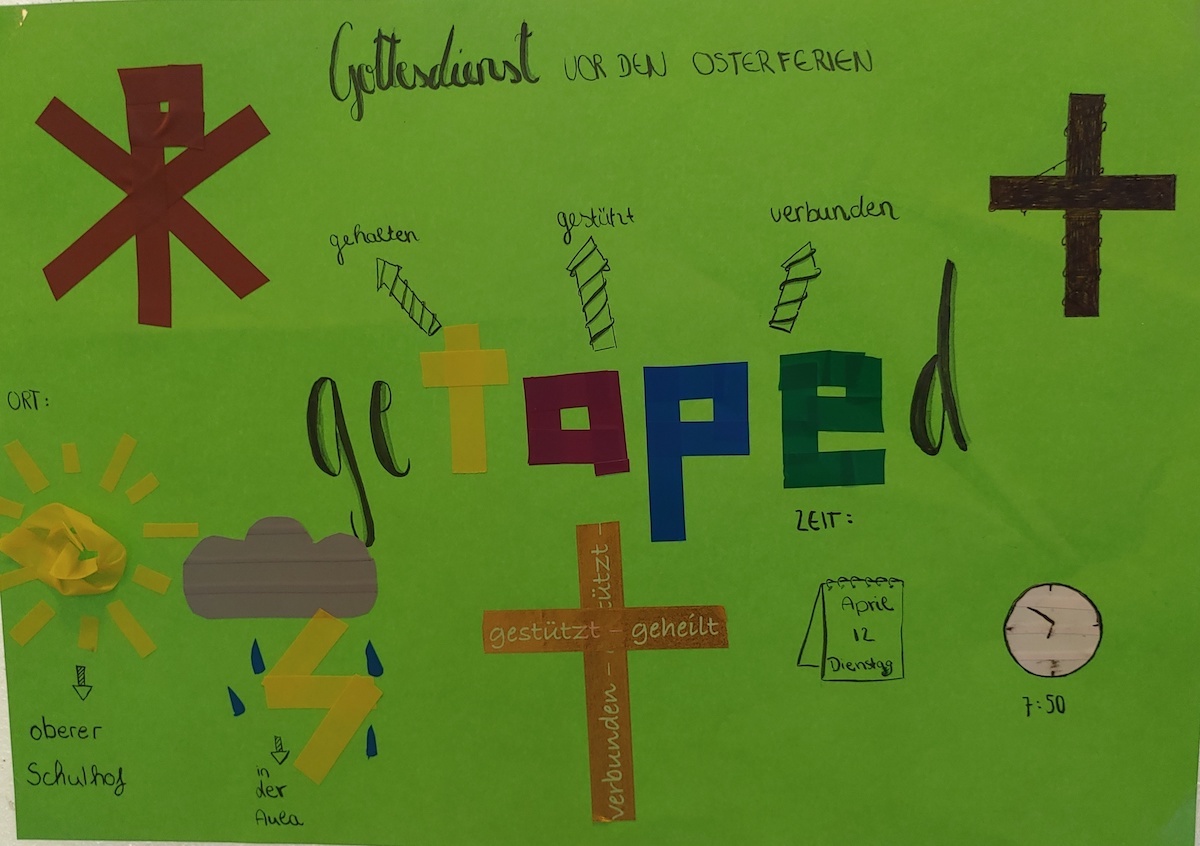 Gottesdienst VOR DEN OSTERFERIEN
gehalten
gestützt
verbunden
getaped
ORT:
oberer
Schulhof
in
der
Aula
gestützt – geheilt
verbunden –
tützt –
ZEIT:
April
12
Dienstag
7:50